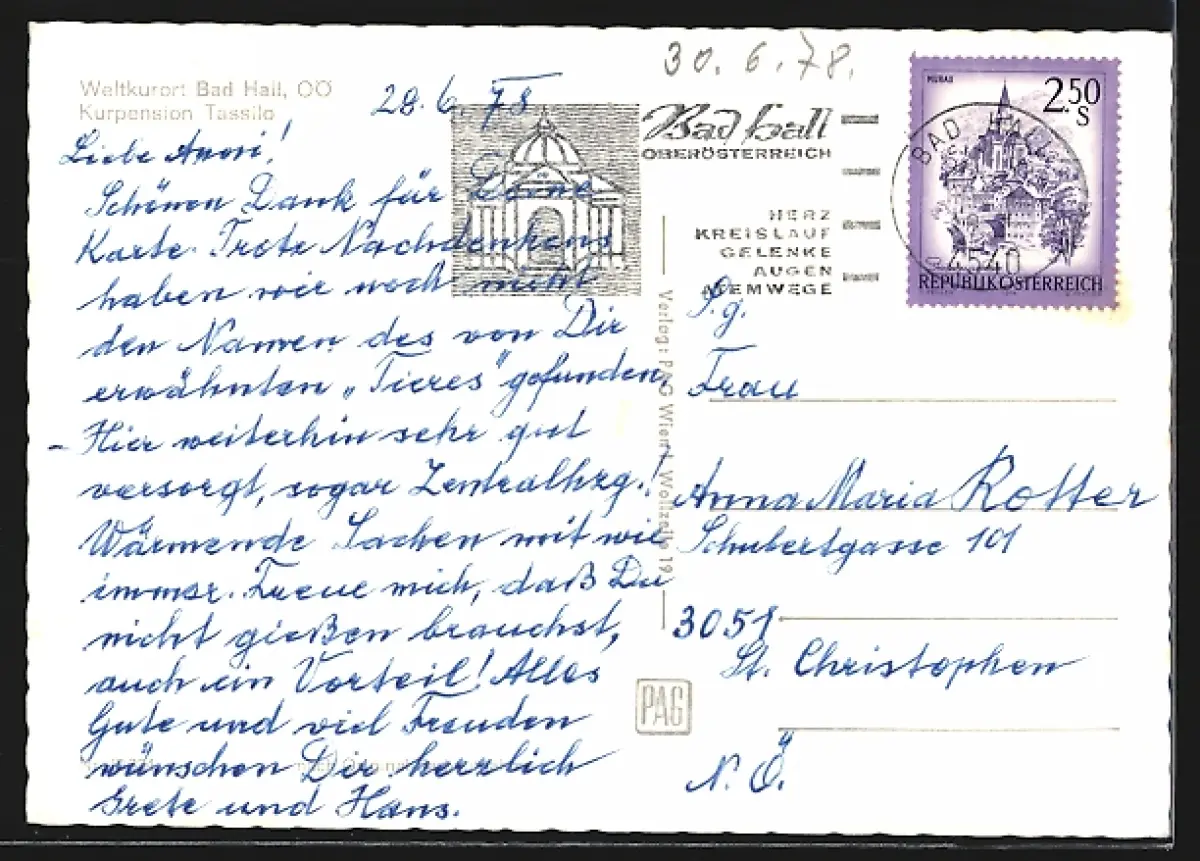 Weltkurort Bad Hall, OÖ
Kurpension Tassilo
28.6.78
Liebe Anni!
Schönen Dank für Deine
Karte. Trotz Nachdenkens
haben wir noch nicht
den Namen des von Dir
erwähnten „Tieres" gefunden.
- Hier weiterhin sehr gut
versorgt, sogar Zentralhzg.!
Wärmende Sachen mit wie
immer. Freue mich, daß Du
nicht gießen brauchst,
auch ein Vorteil! Alles
Gute und viel Freuden
wünschen Dir herzlich
Grete und Hans.
30.6.78.
Bad Hall
OBERÖSTERREICH
HERZ
KREISLAUF
GELENKE
AUGEN
ATEMWEGE
MURAU
2.50
S
BAD HALL
4540
REPUBLIK ÖSTERREICH
Verlag: PAG Wien I Wollzeile 19
PAG
S.g.
Frau
Anna Maria Rotter
Schubertgasse 101
3051
St. Christophen
N.Ö.